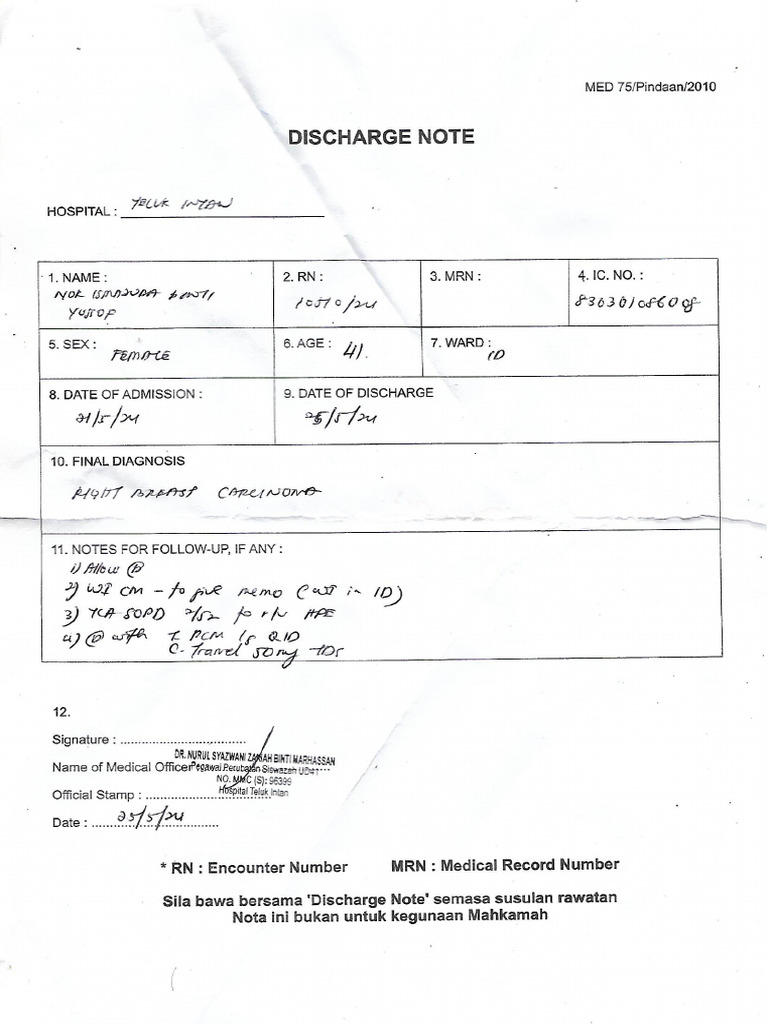 MED 75/Pindaan/2010
DISCHARGE NOTE
HOSPITAL : TELUK INTAN
1. NAME :
NOR ISMAZURA BINTI
YUSSOF
2. RN :
10510/24
3. MRN :
4. IC. NO. :
830301086008
5. SEX :
FEMALE
6. AGE :
41.
7. WARD :
1D
8. DATE OF ADMISSION :
21/5/24
9. DATE OF DISCHARGE
25/5/24
10. FINAL DIAGNOSIS
RIGHT BREAST CARCINOMA
11. NOTES FOR FOLLOW-UP, IF ANY :
1) Allow Ⓓ
2) WI CM - to give memo ( in 1D)
3) TCA SOPD 2/52 for r/v HPE
4) Ⓓ with T. PCM 1g QID
C. Tramal 50mg TDS
12.
Signature : ................................
DR. NURUL SYAZWANI ZAWIAH BINTI MARHASSAN
Name of Medical Officer
Pegawai Perubatan Siswazah UD41
NO. MMC (S): 96399
Official Stamp : ................................
Hospital Teluk Intan
Date : 25/5/24
* RN : Encounter Number MRN : Medical Record Number
Sila bawa bersama 'Discharge Note' semasa susulan rawatan
Nota ini bukan untuk kegunaan Mahkamah